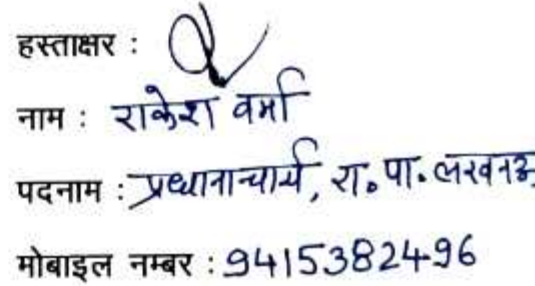 हस्ताक्षर :
नाम : राकेश वर्मा
पदनाम : प्रधानाचार्य, रा॰ पा॰ लखनऊ
मोबाइल नम्बर : 9415382496